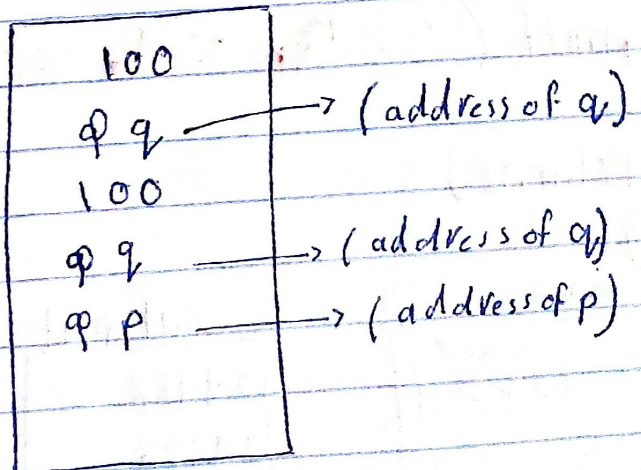 100
&q → (address of q)
100
&q → (address of q)
&p → (address of p)